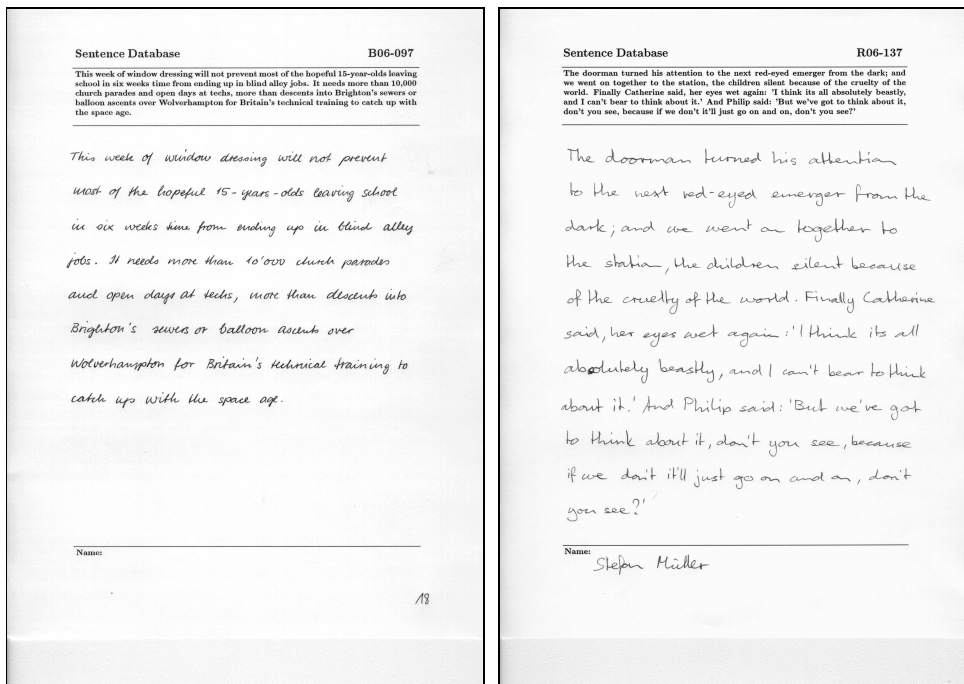 Sentence Database B06-097
This week of window dressing will not prevent most of the hopeful 15-year-olds leaving
school in six weeks time from ending up in blind alley jobs. It needs more than 10,000
church parades and open days at techs, more than descents into Brighton's sewers or
balloon ascents over Wolverhampton for Britain's technical training to catch up with
the space age.
This week of window dressing will not prevent
most of the hopeful 15-years-olds leaving school
in six weeks time from ending up in blind alley
jobs. It needs more than 10'000 church parades
and open days at techs, more than descents into
Brighton's sewers or balloon ascents over
Wolverhampton for Britain's technical training to
catch up with the space age.
Name:
18
Sentence Database R06-137
The doorman turned his attention to the next red-eyed emerger from the dark; and
we went on together to the station, the children silent because of the cruelty of the
world. Finally Catherine said, her eyes wet again: 'I think its all absolutely beastly,
and I can't bear to think about it.' And Philip said: 'But we've got to think about it,
don't you see, because if we don't it'll just go on and on, don't you see?'
The doorman turned his attention
to the next red-eyed emerger from the
dark; and we went on together to
the station, the children silent because
of the cruelty of the world. Finally Catherine
said, her eyes wet again: 'I think its all
absolutely beastly, and I can't bear to think
about it.' And Philip said: 'But we've got
to think about it, don't you see, because
if we don't it'll just go on and on, don't
you see?'
Name:
Stefan Müller